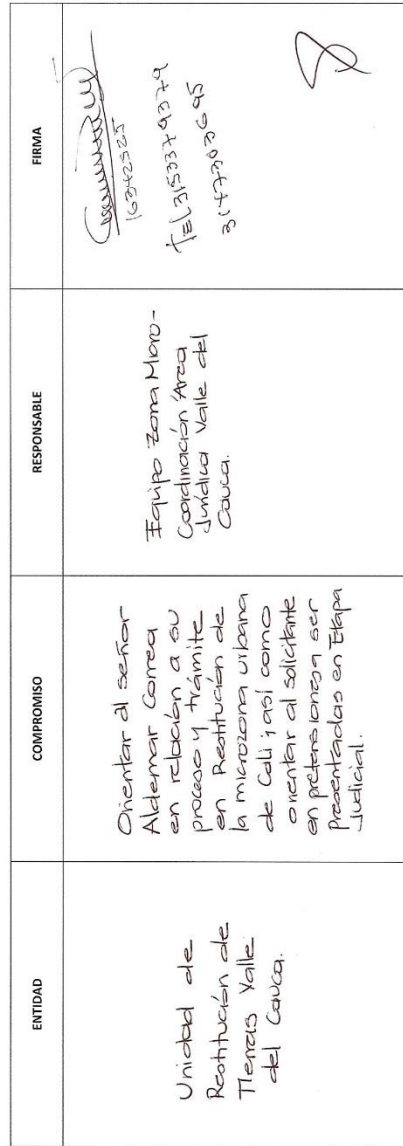 ENTIDAD
COMPROMISO
RESPONSABLE
FIRMA
Unidad de
Restitución de
Tierras Valle
del Cauca.
Orientar al señor
Aldemar Correa
en relación a su
proceso y trámite
en Restitución de
la microzona urbana
de Cali; así como
orientar al solicitante
en pretensiones a ser
Presentadas en Etapa
Judicial.
Equipo Zona Micro-
Coordinación Area
Jurídica Valle del
Cauca.
16342525
TEL 3153379379
3147303695